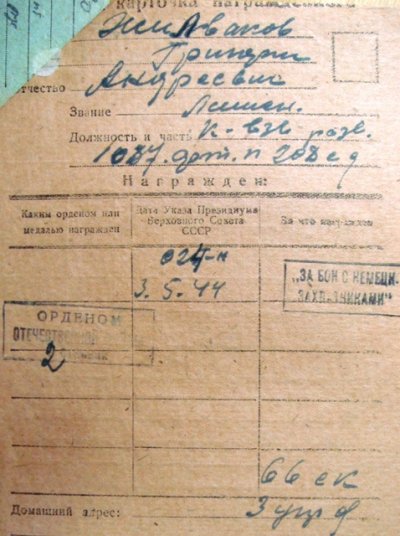 карточка награжденного
Живаков
Григори
Отчество Андреевич
Звание Лишен.
Должность и часть К-взв разв.
1037 арт. п 208 сд
Награжден:
Каким орденом или
медалью награжден
Дата Указа Президиума
Верховного Совета
СССР
За что награжден
024-н
3.5.44
„ЗА БОИ С НЕМЕЦК.
ЗАХВАТЧИКАМИ"
ОРДЕНОМ
ОТЕЧЕСТВЕННОЙ
2
66 ск
3 укр ф
Домашний адрес: